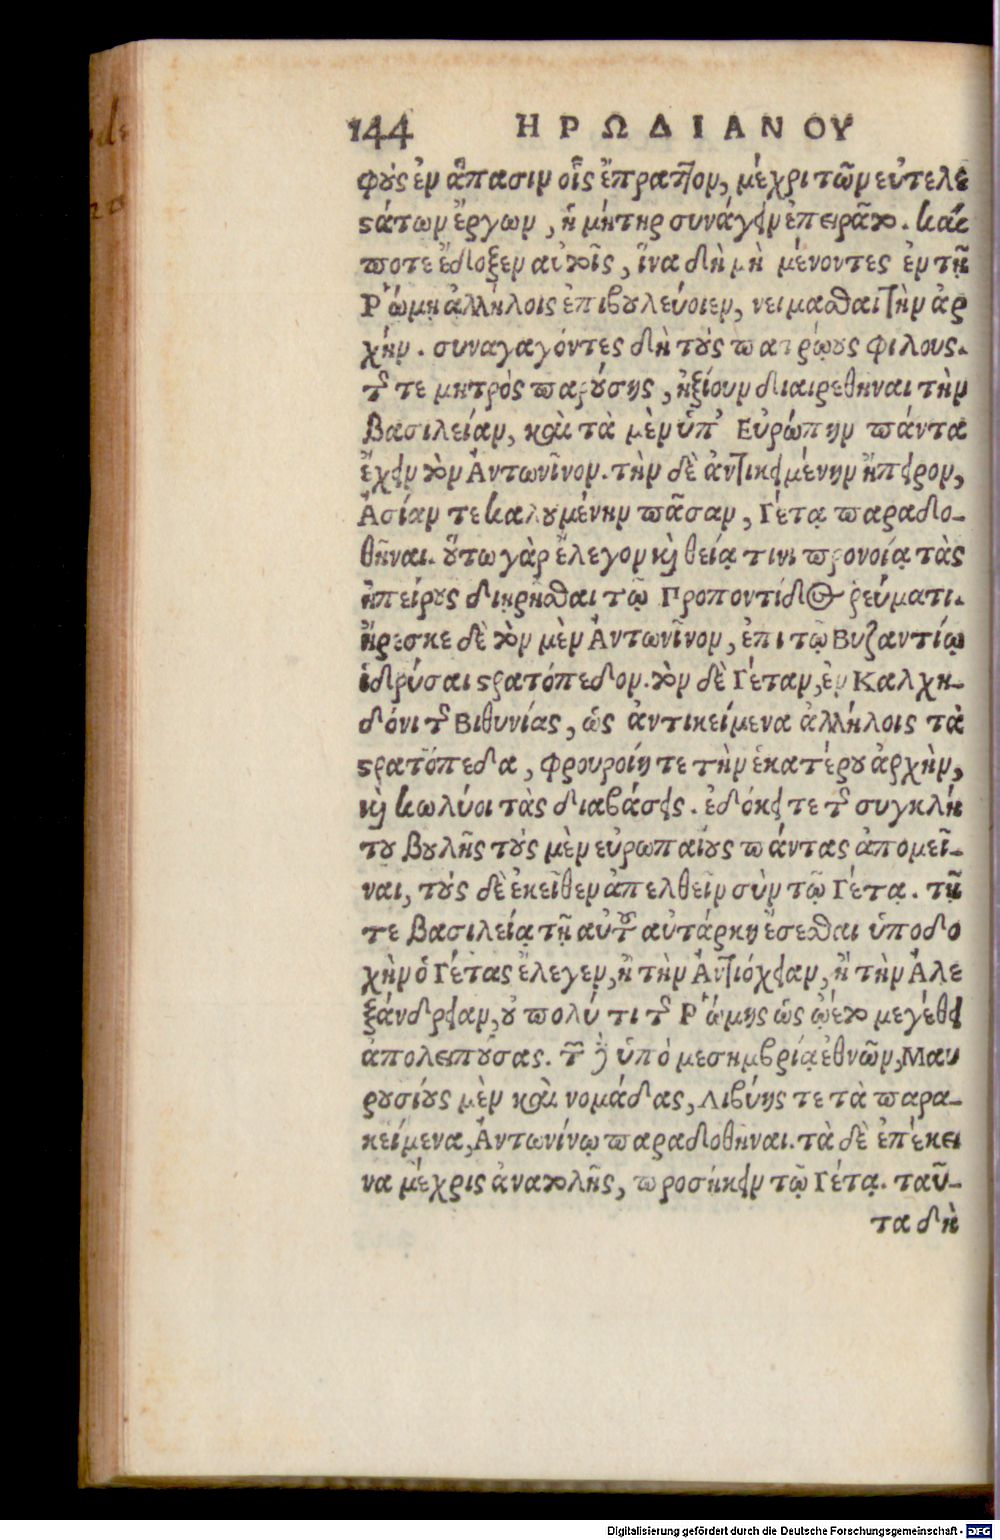 144 ΗΡΩΔΙΑΝΟΥ
φοὺς ἐν ἅπασιν οἷς ἔπραττον, μέχρι τῶν εὐτελε
στάτων ἔργων, ἡ μήτηρ συνάγειν ἐπειρᾶτο. καί
ποτε ἔδοξεν αὐτοῖς, ἵνα δὴ μὴ μένοντες ἐν τῇ
Ῥώμῃ ἀλλήλοις ἐπιβουλεύοιεν, νείμασθαι τὴν ἀρ
χήν. συναγαγόντες δὴ τοὺς πατρῴους φίλους.
τῆς τε μητρὸς παρούσης, ἠξίουν διαιρεθῆναι τὴν
βασιλείαν, καὶ τὰ μὲν ὑπ’ Εὐρώπην πάντα
ἔχειν τὸν Ἀντωνῖνον. τὴν δὲ ἀντικειμένην ἤπειρον,
Ἀσίαν τε καλουμένην πᾶσαν, Γέτᾳ παραδο-
θῆναι. οὕτω γὰρ ἔλεγον καὶ θείᾳ τινι προνοίᾳ τὰς
ἠπείρους διῃρῆσθαι τῷ Προποντίδος ῥεύματι.
ἤρεσκε δὲ τὸν μὲν Ἀντωνῖνον, ἐπι τῷ Βυζαντίῳ
ἱδρύσαι στρατόπεδον. τὸν δὲ Γέταν, ἐν Καλχη-
δόνι τῆς Βιθυνίας, ὡς ἀντικείμενα ἀλλήλοις τὰ
στρατόπεδα, φρουροίη τε τὴν ἑκατέρου ἀρχὴν,
καὶ κωλύοι τὰς διαβάσεις. ἐδόκει τε τῆς συγκλή
του βουλῆς τοὺς μὲν εὐρωπαίους πάντας ἀπομεῖ-
ναι, τοὺς δὲ ἐκεῖθεν ἀπελθεῖν σὺν τῷ Γέτᾳ. τῇ
τε βασιλείᾳ τῇ αὐτοῦ αὐτάρκη ἔσεσθαι ὑποδο
χὴν ὁ Γέτας ἔλεγεν, ἢ τὴν Ἀντιόχειαν, ἢ τὴν Ἀλε
ξάνδρειαν, οὐ πολύ τι τῆς Ῥώμης ὡς ᾤετο μεγέθει
ἀπολειπούσας. τῶν δὲ ὑπὸ μεσημβρίᾳ ἐθνῶν, Μαυ
ρουσίους μὲν καὶ νομάδας, Λιβύης τε τὰ παρα-
κείμενα, Ἀντωνίνῳ παραδοθῆναι. τὰ δὲ ἐπέκει
να μέχρις ἀνατολῆς, προσήκειν τῷ Γέτᾳ. ταῦ-
τα δὴ
Digitalisierung gefördert durch die Deutsche Forschungsgemeinschaft - DFG